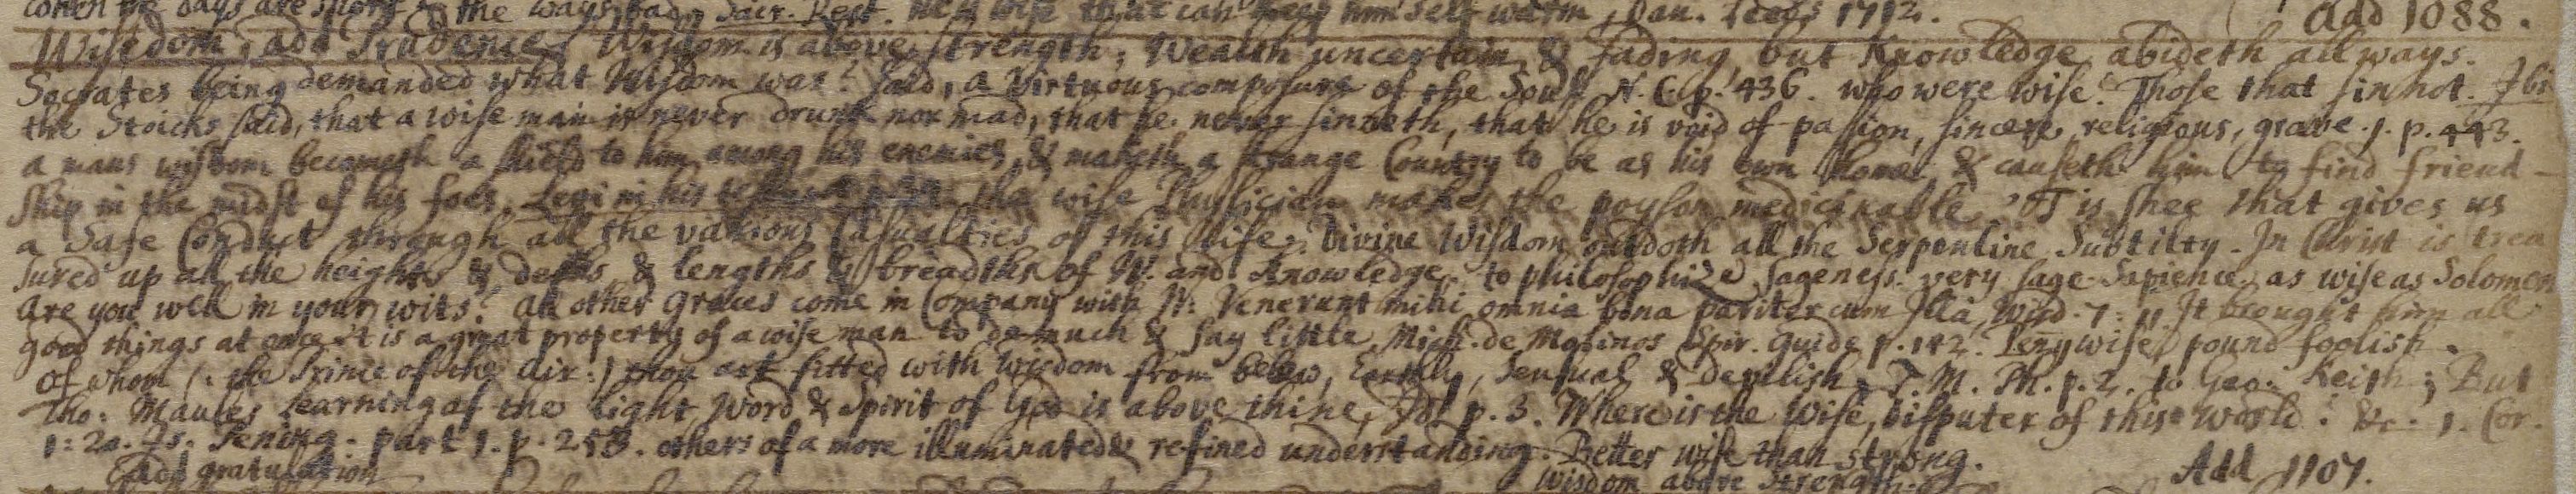 when the days are short & the ways bad, Sacr. Rest. He's wise that can keep himself warm, Dan. Leeds 1712. Add 1088.
Wisedom, add Prudence, Wisdom is above strength; Wealth uncertain & fading, but Knowledge abideth allways.
Socrates being demanded what Wisdom was? said, a Virtuous composure of the Soul N. C. p. 436. who were wise? Those that sin not. Ibi
the Stoicks said, that a wise man is never drunk nor mad, that he never sinneth, that he is void of passion, sincere, religious, grave. J. p. 443.
a mans wisdom becometh a shield to him among his enemies, & maketh a strange Country to be as his own home, & causeth him to find friend-
ship in the midst of his foes. Levi in his the wise Physician makes the poyson medicinable. 'T is shee that gives us
a Safe Conduct through all the various Casualties of this life. Divine Wisdom outdoth all the Serpentine Subtilty. In Christ is trea
sured up all the heights & depths & lengths & breadths of W. and Knowledge. to philosophize, sageness. very sage Sapience. as wise as Solomon
are you well in your wits? All other Graces come in Company with W: Venerunt mihi omnia bona pariter cum Illa, Wisd. 7: 11. It brought him all
good things at once. 't is a great property of a wise man to do much & say little, Mich. de Molinos Spir. Guide p. 142. Peny wise, pound foolish.
Of whom (: the Prince of the Air:) thou art fitted with wisdom from below, Earthly, Sensual & Devilish, T. M. Ph. p. 2. to Geo: Keith; But
Tho: Maules Learning of the Light, Word & Spirit of God is above thine, Id. p. 3. Where is the Wise, disputer of this world? &c. 1. Cor.
1: 20. Is. Pening. part 1. p. 258. others of a more illuminated & refined understanding. Better wise than strong.
Add gratulation Wisdom above Strength. Add 1107.